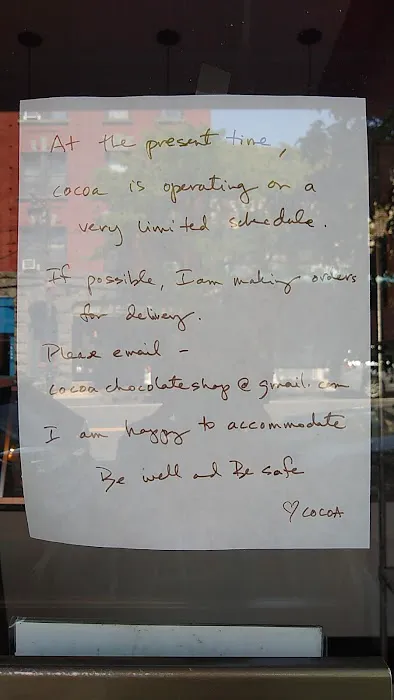 At the present time,
cocoa is operating on a
very limited schedule.
If possible, I am making orders
for delivery.
Please email -
cocoachocolateshop@gmail.com
I am happy to accommodate
Be well and Be safe
♡ COCOA